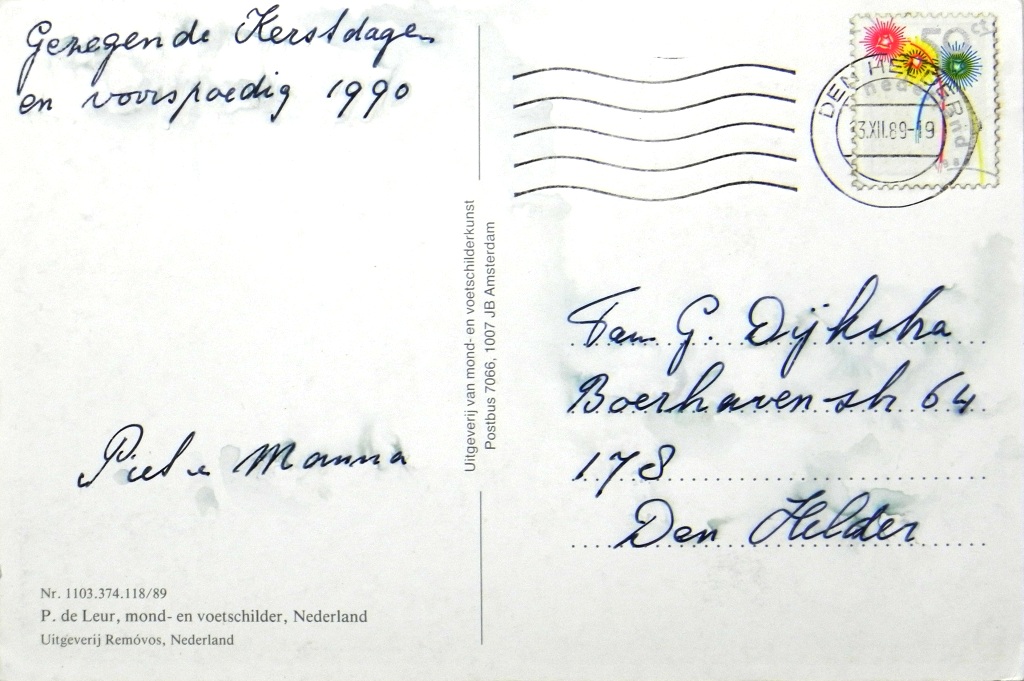 Gezegende Kerstdagen
en voorspoedig 1990
Piet e Manna
Nr. 1103.374.118/89
P. de Leur, mond- en voetschilder, Nederland
Uitgeverij Remóvos, Nederland
Uitgeverij van mond- en voetschilderkunst
Postbus 7066, 1007 JB Amsterdam
50 ct
nederland
DEN HELDER
3.XII.89-19
Fam G. Dijkstra
Boerhaven str 64
178
Den Helder